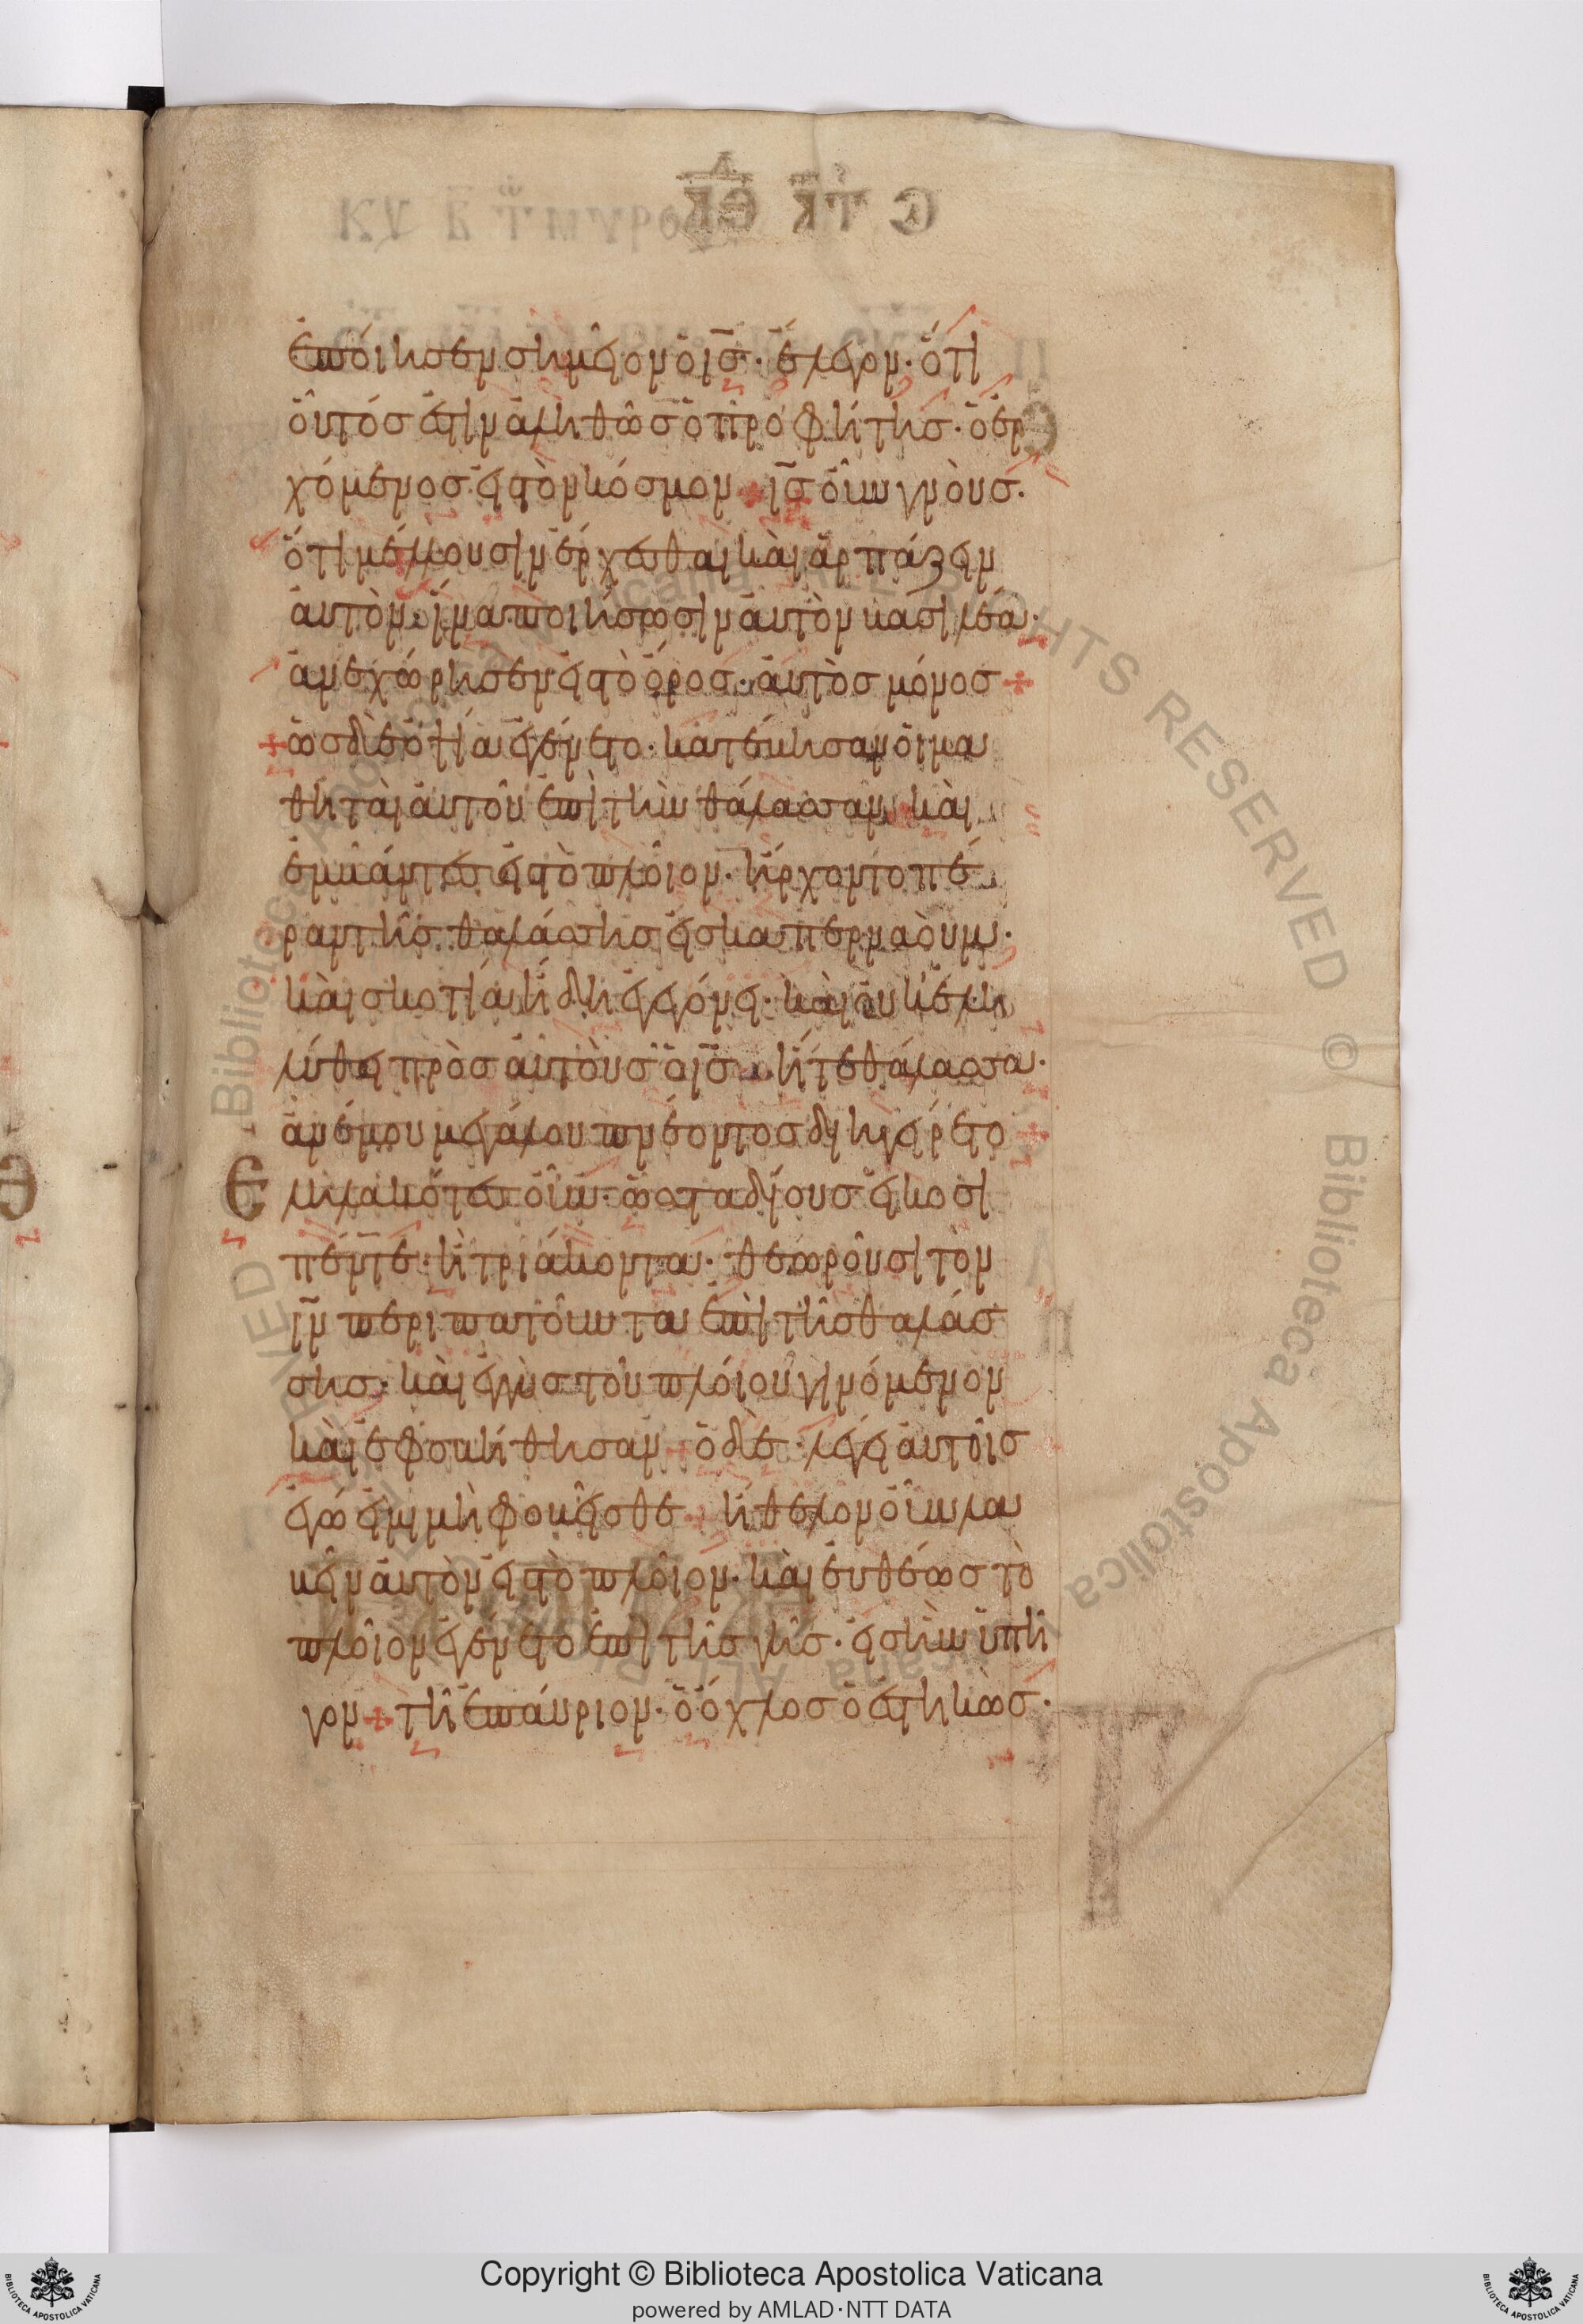 ἐποίησεν σημεῖον ὁ ις̅· ἔλεγον· ὅτι
οὗτός ἐστιν ἀληθῶς ὁ προφήτης· ὁ ἐρ
χόμενος εἰς τὸν κόσμον + ις̅ οὖν γνοὺς·
ὅτι μέλλουσιν ἔρχεσθαι καὶ ἁρπάζειν
αὐτὸν· ἵνα ποιήσωσιν αὐτὸν βασιλέα·
ἀνεχώρησεν εἰς τὸ ὄρος· αὐτὸς μόνος +
+ ὡς δὲ ὀψία ἐγένετο· κατέβησαν οἱ μα
θηταὶ αὐτοῦ ἐπὶ τὴν θάλασσαν· καὶ
ἐμβάντες εἰς τὸ πλοῖον· ἤρχοντο πέ
ραν τῆς θαλάσσης εἰς καπερναούμ·
καὶ σκοτία ἤδη ἐγεγόνει· καὶ οὐκ ἐλη
λύθει πρὸς αὐτοὺς ὁ ις̅· ἥ τε θάλασσα·
ἀνέμου μεγάλου πνέοντος διηγείρετο +
Ἐληλακότες οὖν· ὡς σταδίους εἴκοσι
πέντε· ἢ τριάκοντα· θεωροῦσι τὸν
ιν̅ περιπατοῦντα ἐπὶ τῆς θαλάσ
σης· καὶ ἐγγὺς τοῦ πλοίου γινόμενον
καὶ ἐφοβήθησαν + ὁ δὲ· λέγει αὐτοῖς
ἐγώ εἰμι μὴ φοβεῖσθε + ἤθελον οὖν λα
βεῖν αὐτὸν εἰς τὸ πλοῖον· καὶ εὐθέως τὸ
πλοῖον ἐγένετο ἐπὶ τῆς γῆς· εἰς ἣν ὑπῆ
γον + τῇ ἐπαύριον· ὁ ὄχλος ὁ ἑστηκὼς·
Copyright © Biblioteca Apostolica Vaticana
powered by AMLAD·NTT DATA